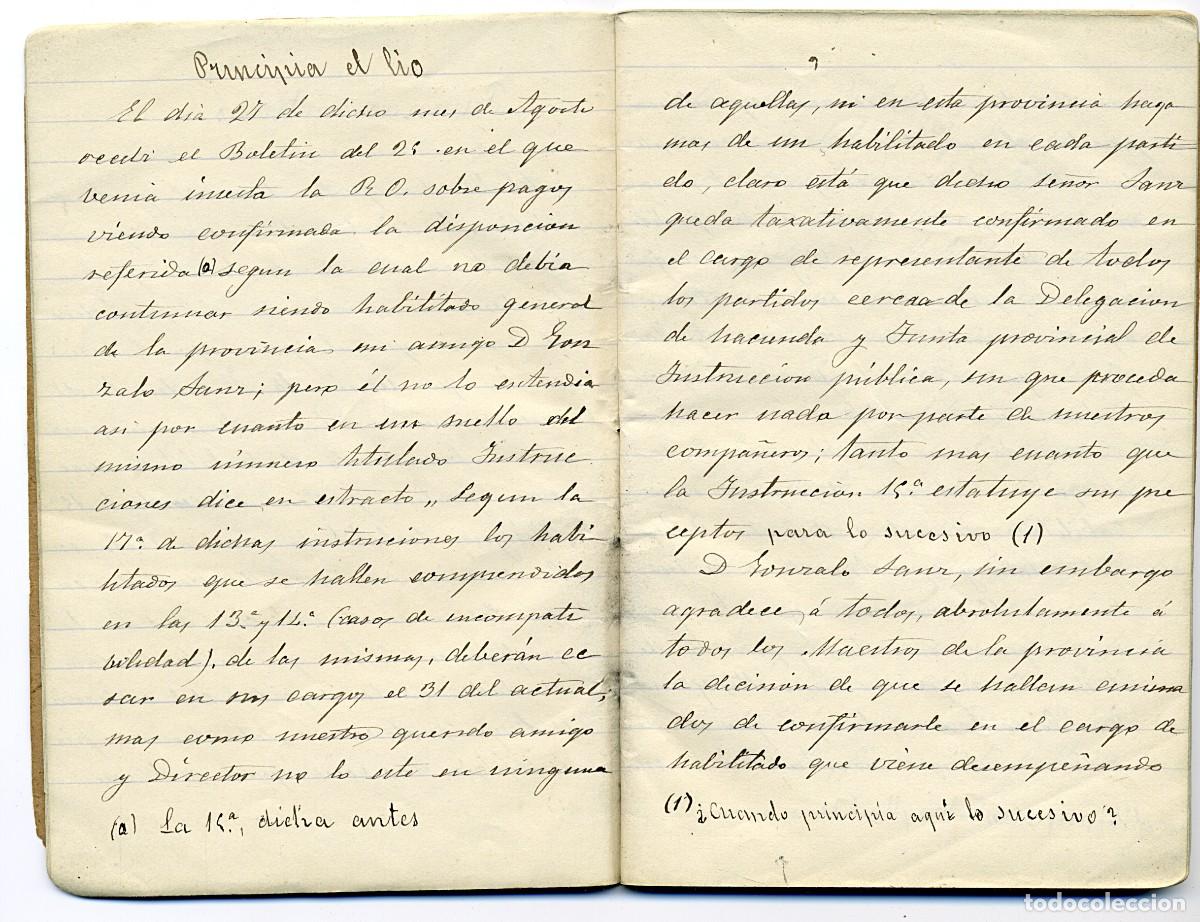 Principia el lio
El dia 27 de dicho mes de Agosto
recibi el Boletin del 25 en el que
venia inserta la R O. sobre pagos
viendo confirmada la disposicion
referida (a) segun la cual no debia
continuar siendo habilitado general
de la provincia mi amigo D Gon
zalo Sanz; pero él no lo entendia
asi por cuanto en un suelto del
mismo número titulado Instruc
ciones dice en estracto „ Segun la
17ª de dichas instrucciones los habi
litados que se hallen comprendidos
en las 13ª y 14ª (casos de incompati
bilidad). de las mismas, deberán ce
sar en sus cargos el 31 del actual,
mas como nuestro querido amigo
y Director no lo este en ninguna
(a) La 15ª, dicha antes
de aquellas, ni en esta provincia haya
mas de un habilitado en cada parti
do, claro está que dicho señor Sanz
queda taxativamente confirmado en
el cargo de representante de todos
los partidos cerca de la Delegacion
de hacienda y Junta provincial de
Instruccion pública, sin que proceda
hacer nada por parte de nuestros
compañeros; tanto mas cuanto que
la Instruccion 15ª estatuye sus pre
ceptos para lo sucesivo (1)
D Gonzalo Sanz, sin embargo
agradece á todos, absolutamente á
todos los Maestros de la provincia
la decision de que se hallan anima
dos de confirmarle en el cargo de
habilitado que viene desempeñando
(1) ¿Cuando principia aquí lo sucesivo?
todocoleccion